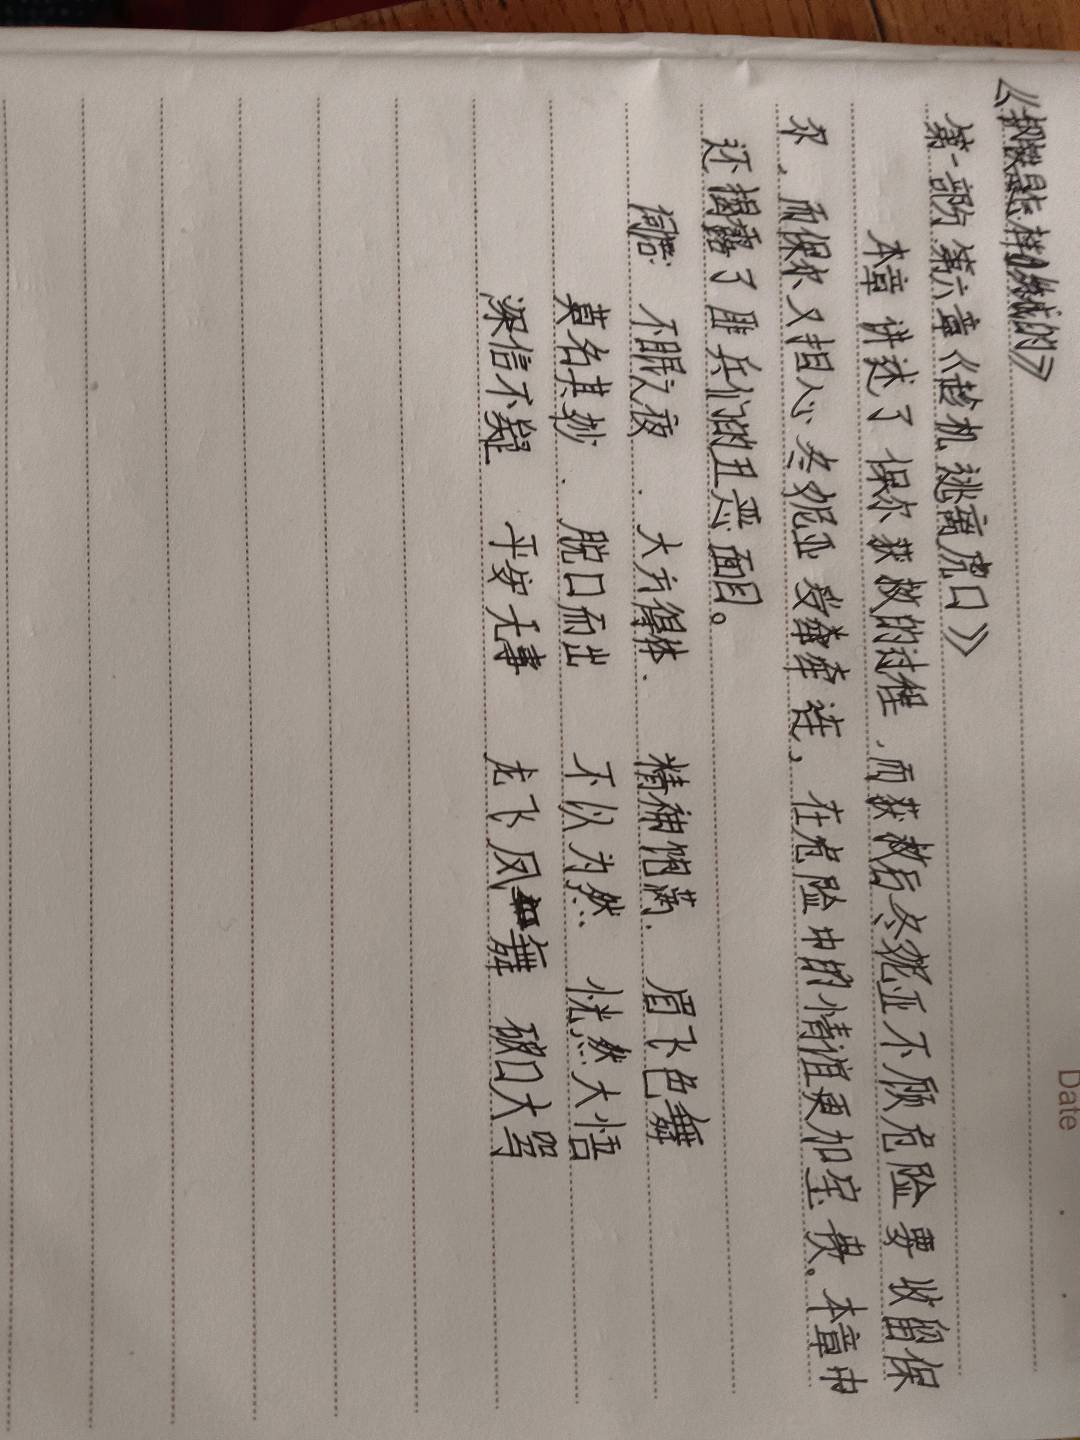 Date
《钢铁是怎样炼成的》
第一部第六章《趁机逃离虎口》
本章讲述了保尔获救的过程，而获救后冬妮亚不顾危险要收留保
尔，而保尔又担心冬妮亚受牵连，在危险中的情谊更加宝贵。本章中
还揭露了匪兵们的丑恶面目。
词 不眠之夜. 大方得体. 精神饱满. 眉飞色舞
莫名其妙. 脱口而出 不以为然 恍然大悟
深信不疑 平安无事 龙飞凤舞 破口大骂